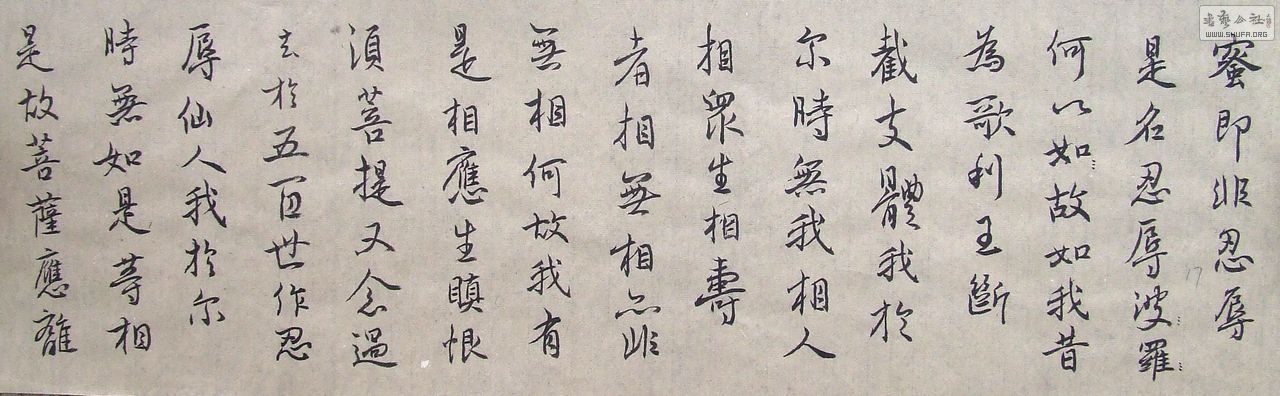 蜜即非忍辱
是名忍辱波羅
何以如故如我昔
為歌利王斷
截支體我於
尔時無我相人
相眾生相壽
者相無相亦非
無相何故我有
是相應生瞋恨
須菩提又念過
去於五百世作忍
辱仙人我於尔
時無如是等相
是故菩薩應離
17
書藝公社
WWW.SHUFA.ORG